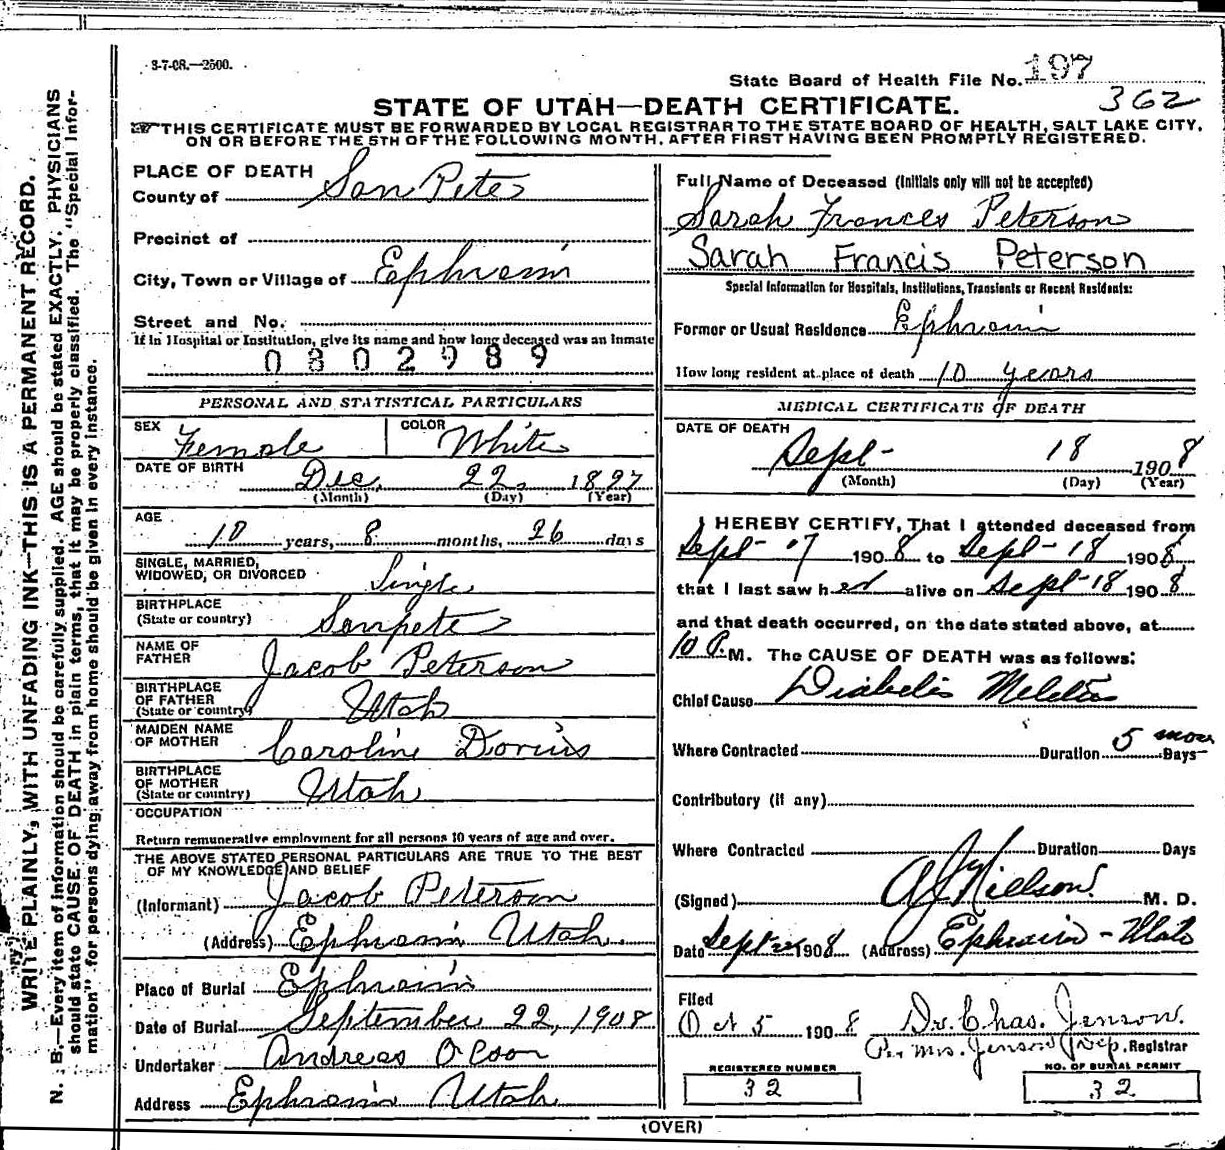 3-7-08.—2500.
State Board of Health File No. 197
362
STATE OF UTAH—DEATH CERTIFICATE.
THIS CERTIFICATE MUST BE FORWARDED BY LOCAL REGISTRAR TO THE STATE BOARD OF HEALTH, SALT LAKE CITY,
ON OR BEFORE THE 5TH OF THE FOLLOWING MONTH, AFTER FIRST HAVING BEEN PROMPTLY REGISTERED.
WRITE PLAINLY, WITH UNFADING INK—THIS IS A PERMANENT RECORD.
N. B.—Every item of information should be carefully supplied. AGE should be stated EXACTLY. PHYSICIANS
should state CAUSE OF DEATH in plain terms, that it may be properly classified. The "Special Infor-
mation" for persons dying away from home should be given in every instance.
PLACE OF DEATH
County of San Pete
Precinct of
City, Town or Village of Ephraim
Street and No.
If in Hospital or Institution, give its name and how long deceased was an Inmate
0802989
PERSONAL AND STATISTICAL PARTICULARS
SEX Female COLOR White
DATE OF BIRTH Dec. 22, 1897
(Month) (Day) (Year)
AGE
10 years, 8 months, 26 days
SINGLE, MARRIED,
WIDOWED, OR DIVORCED Single
BIRTHPLACE
(State or country) Sanpete
NAME OF
FATHER Jacob Peterson
BIRTHPLACE
OF FATHER
(State or country) Utah
MAIDEN NAME
OF MOTHER Caroline Dorius
BIRTHPLACE
OF MOTHER
(State or country) Utah
OCCUPATION
Return remunerative employment for all persons 10 years of age and over.
THE ABOVE STATED PERSONAL PARTICULARS ARE TRUE TO THE BEST
OF MY KNOWLEDGE AND BELIEF
(Informant) Jacob Peterson
(Address) Ephraim Utah.
Place of Burial Ephraim
Date of Burial September 22, 1908
Undertaker Andreas Olson
Address Ephraim Utah
Full Name of Deceased (Initials only will not be accepted)
Sarah Frances Peterson
Sarah Francis Peterson
Special Information for Hospitals, Institutions, Transients or Recent Residents:
Former or Usual Residence Ephraim
How long resident at place of death 10 years
MEDICAL CERTIFICATE OF DEATH
DATE OF DEATH
Sept- 18 1908
(Month) (Day) (Year)
I HEREBY CERTIFY, That I attended deceased from
Sept- 17 1908 to Sept-18 1908,
that I last saw her alive on Sept-18 1908
and that death occurred, on the date stated above, at
10 P. M. The CAUSE OF DEATH was as follows:
Chief Cause Diabetis Meletus
Where Contracted Duration 5 mos Days
Contributory (if any)
Where Contracted Duration Days
(Signed) A J Nielson M. D.
Date Sept 1908 (Address) Ephraim - Utah
Filed
Oct 5 1908 Dr. Chas. Jenson.
Per Mrs. Jenson Dep. Registrar
REGISTERED NUMBER NO. OF BURIAL PERMIT
32 32
(OVER)